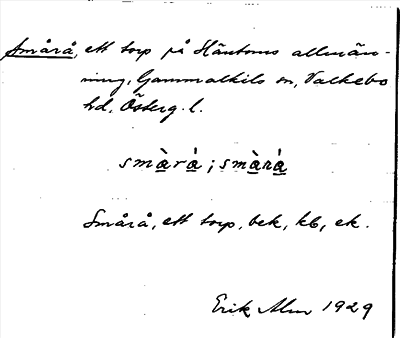 Smårå, ett torp på Häntorns allmän-
ning, Gammalkils sn, Valkebo
hd, Österg. l.
smàrá; smàrá
Smårå, ett torp, bek, kb, ek.
Erik Alm 1929